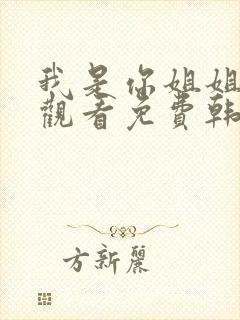 我是你姐姐
觀看免費韩
方新麗